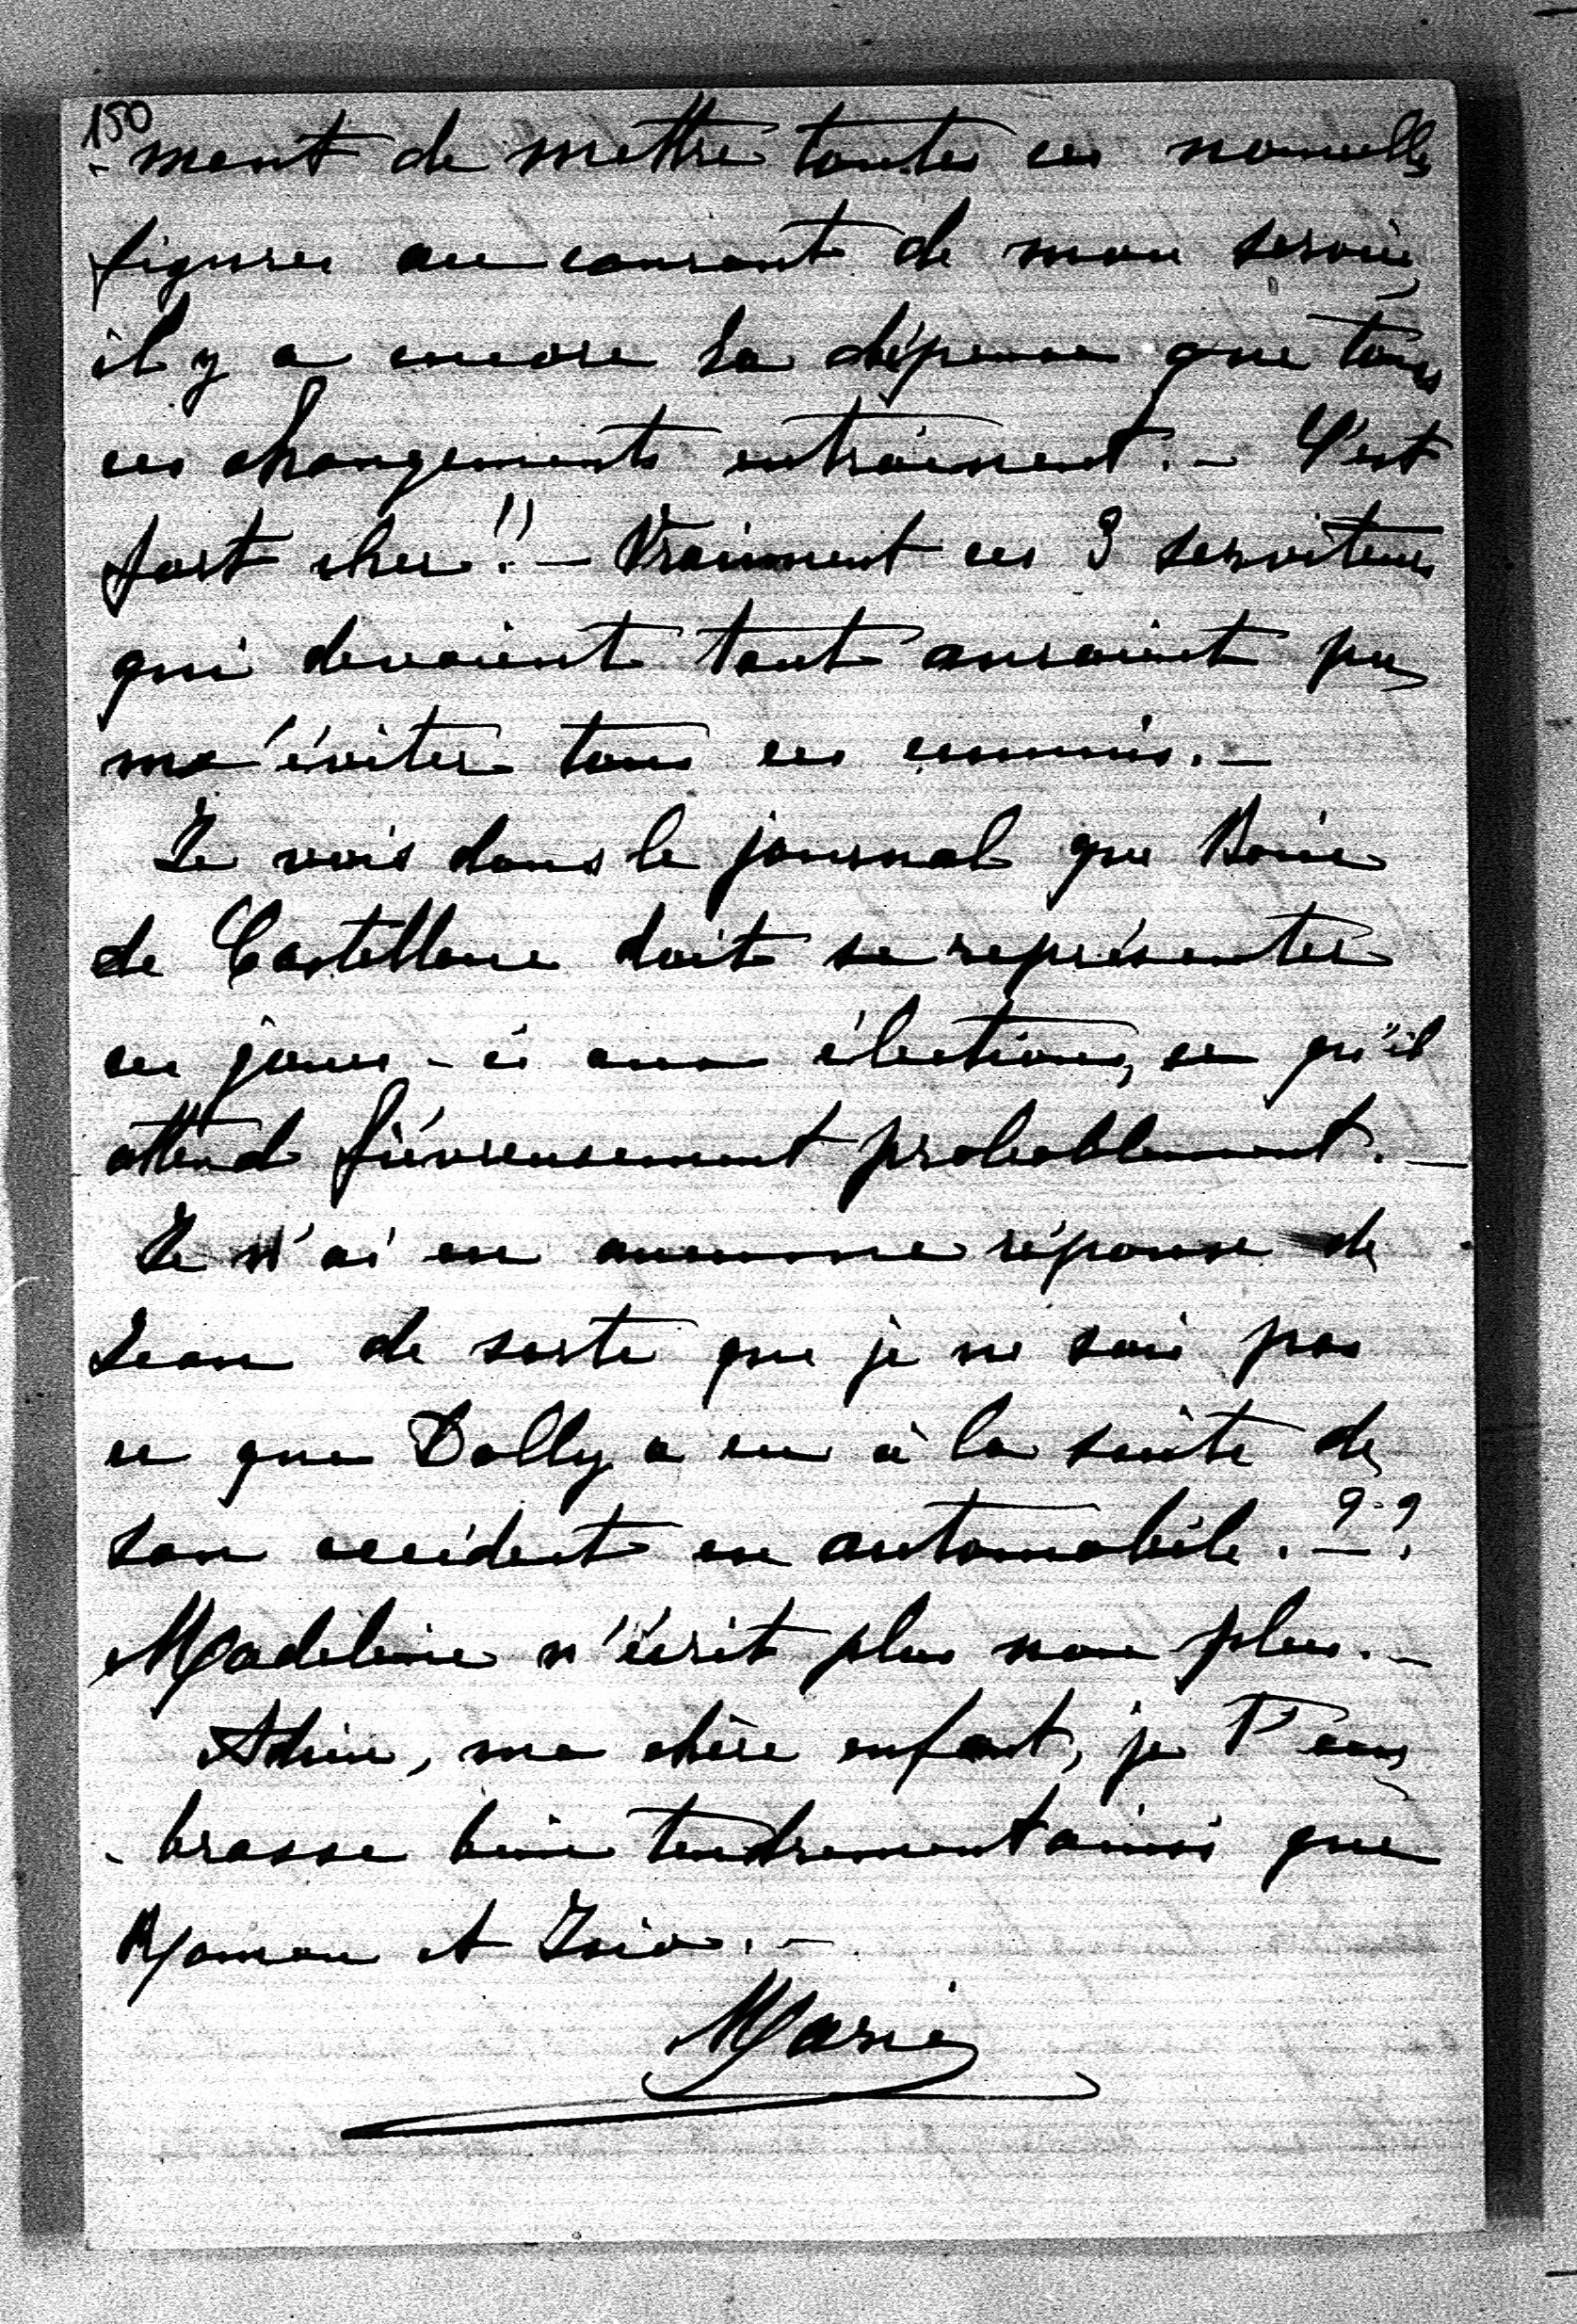 150
-ment de mettre toutes ces nouvelles
figures au courant de mon service,
il y a encore la dépense que tous
ces changements entraînent. - C'est
fort cher !! - Vraiment ces 3 serviteurs
qui devaient tant auraient pu
m'éviter tous ces ennuis. -
Je vois dans le journal que Boni
de Castellane doit se représenter
ces jours-ci aux élections, ce qu'il
attend fièvreusement probablement. -
Je n'ai eu aucune réponse de
Jean de sorte que je ne sais pas
ce que Dolly a eu à la suite de
son accident en automobile. ? - ?
Madeleine n'écrit plus non plus. -
Adieu, ma chère enfant, je T'em
-brasse bien tendrement ainsi que
Maman et
Marie